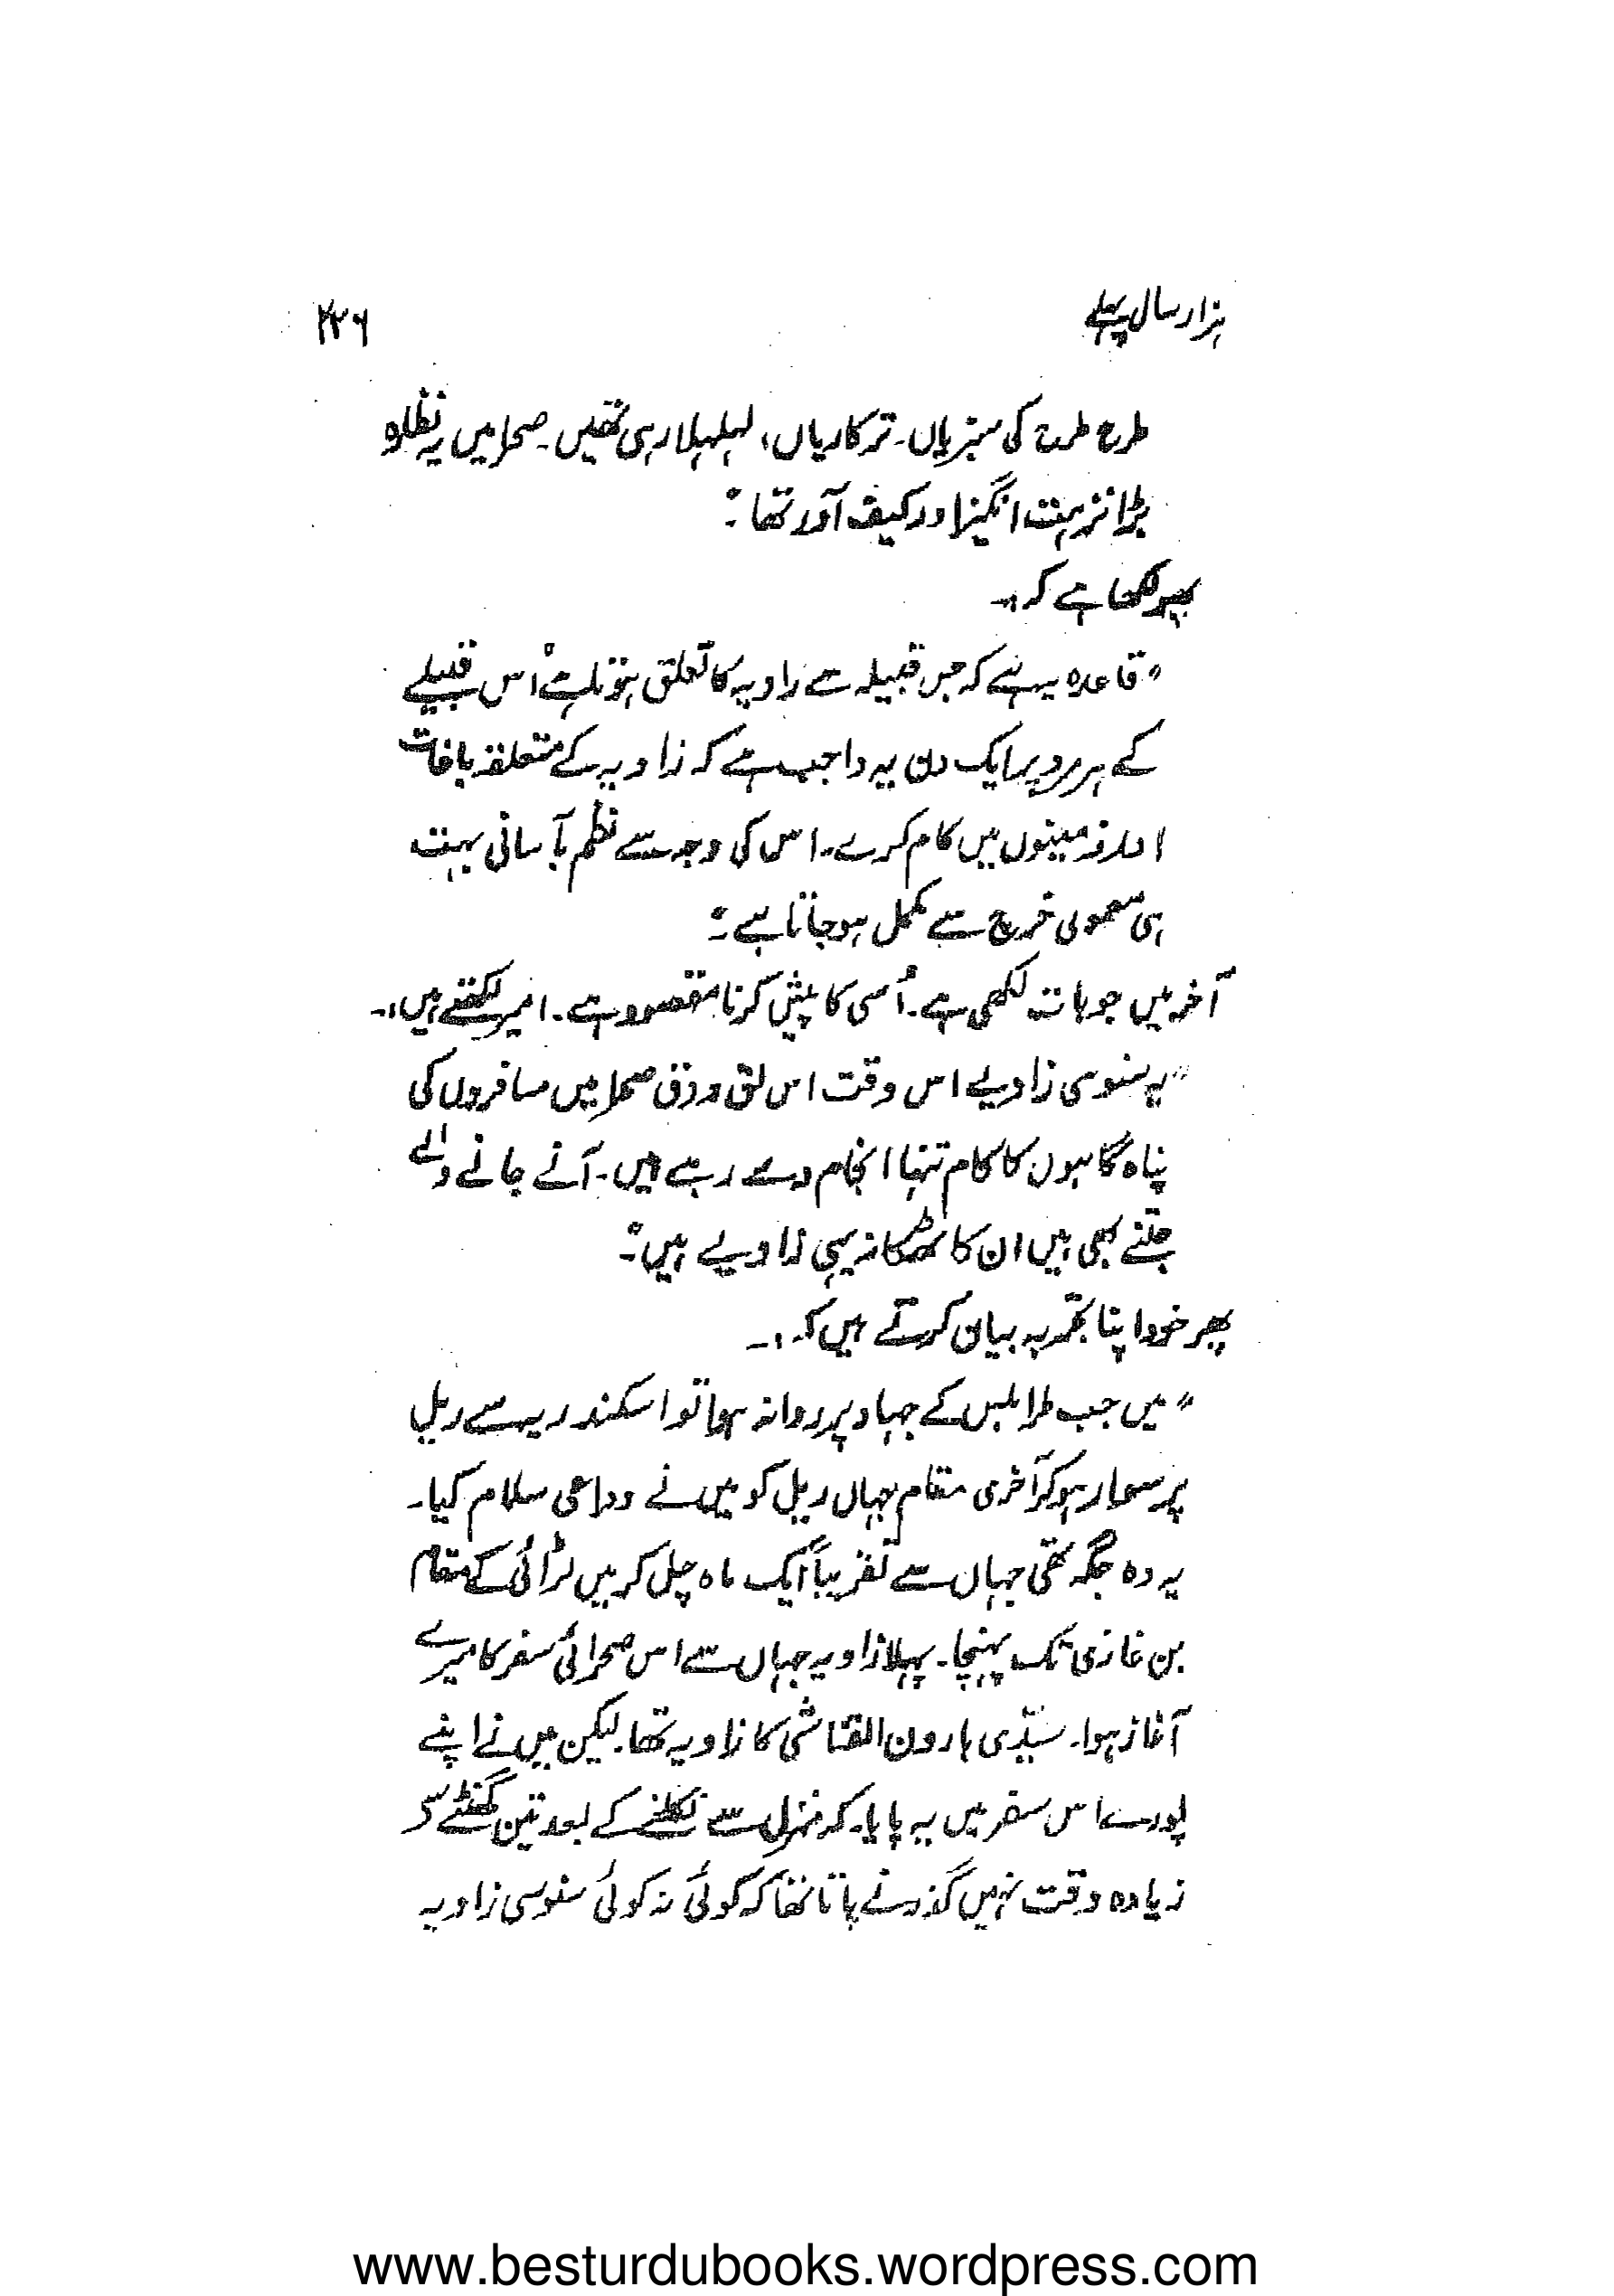 ہزار سال پہلے
۲۳۶
طرح طرح کی سبزیاں۔ ترکاریاں، لہلہلا رہی تھیں۔ صحرا میں یہ نظارہ
بڑا نزہت انگیز اور کیف آور تھا :"
پھر لکھا ہے کہ :۔
"قاعدہ یہ ہے کہ جس قبیلہ سے زاویہ کا تعلق ہوتا ہے، اُس قبیلے
کے ہر مرد پر ایک دن یہ واجب ہے کہ زاویہ کے متعلقہ باغات
اور زمینوں میں کام کرے۔ اس کی وجہ سے نظم بآسانی بہت
ہی معمولی خرچ سے مکمل ہو جاتا ہے۔"
آخر میں جو بات لکھی ہے۔ اُسی کا پیش کرنا مقصود ہے۔ امیر لکھتے ہیں :۔
"یہ سنوسی زاویے اس وقت اس لق و دق صحرا میں مسافروں کی
پناہ گاہوں کا کام تنہا انجام دے رہے ہیں۔ آنے جانے والے
جتنے بھی ہیں ان کا ٹھکانہ یہی زاویے ہیں۔"
پھر خود اپنا تجربہ بیان کرتے ہیں کہ :۔
"میں جب طرابلس کے جہاد پر روانہ ہوا تو اسکندریہ سے ریل
پر سوار ہو کر آخری مقام جہاں ریل کو میں نے وداعی سلام کیا۔
یہ وہ جگہ تھی جہاں سے تقریباً ایک ماہ چل کر میں لڑائی کے مقام
بن غازی تک پہنچا۔ پہلا زاویہ جہاں سے اس صحرائی سفر کا میرے
آغاز ہوا۔ سیّدی ہارون القناشی کا زاویہ تھا۔ لیکن میں نے اپنے
پورے اس سفر میں یہ پایا۔ کہ منزل سے نکلنے کے بعد تین گھنٹے سے
زیادہ وقت نہیں گذرنے پاتا تھا کہ کوئی نہ کوئی سنوسی زاویہ
www.besturdubooks.wordpress.com